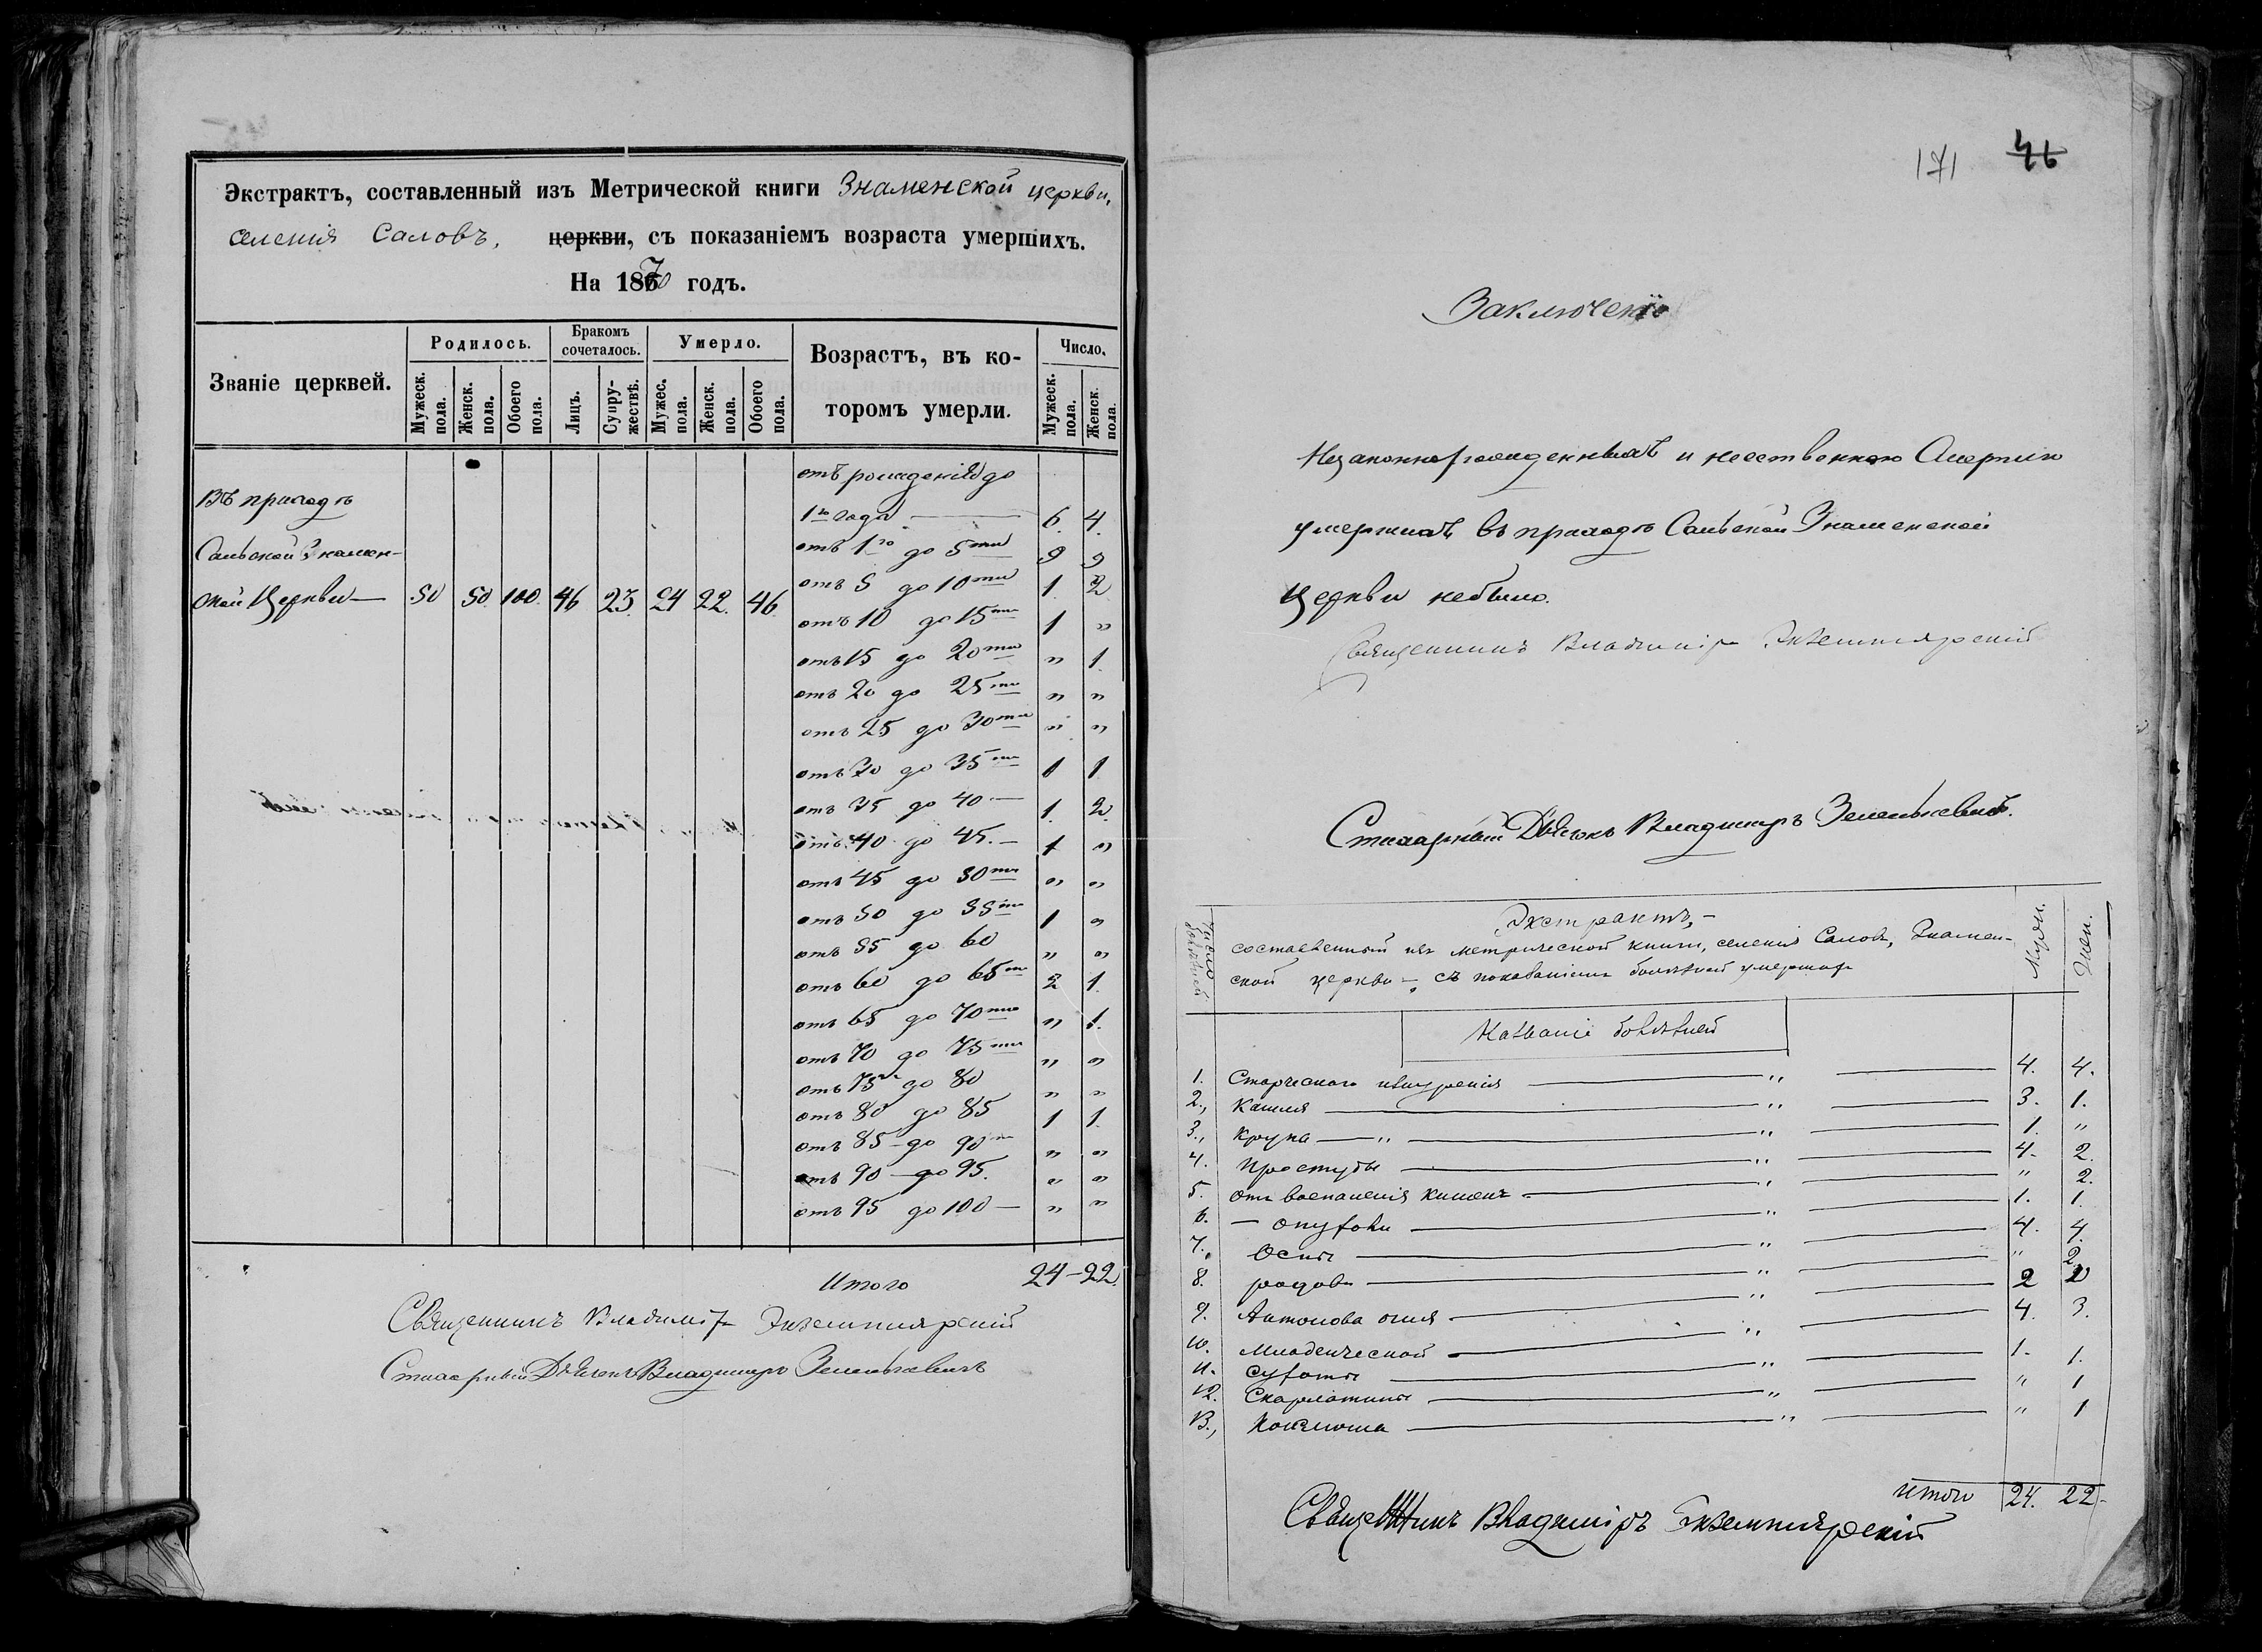 Экстрактъ, составленный изъ Метрической книги Знаменской церкви,
селенія Саловъ, церкви, съ показаніемъ возраста умершихъ.
На 1870 годъ.
Званіе церквей.
Родилось.
Бракомъ сочеталось.
Умерло.
Возрастъ, въ которомъ умерли.
Число.
Мужеск. пола.
Женск. пола.
Обоего пола.
Лицъ.
Супружествъ.
Мужес. пола.
Женск. пола.
Обоего пола.
Мужеск. пола.
Женск. пола.
Въ приходѣ
Сальской Знамен-
ской Церкви — 50 50. 100. 46 23. 24 22. 46.
отъ рожденія до
1го года — 6. 4.
отъ 1го до 5ти 9 9
отъ 5 до 10ти 1. 2
отъ 10 до 15ти 1 „
отъ 15 до 20ти „ 1.
отъ 20 до 25ти „ „
отъ 25 до 30ти „ „
отъ 30 до 35ти 1 1
отъ 35 до 40 — 1. 2.
отъ 40 до 45. — 1 „
отъ 45 до 50ти „ „
отъ 50 до 55ти 1 „
отъ 55 до 60 „ „
отъ 60 до 65ти 2 1.
отъ 65 до 70ти „ 1.
отъ 70 до 75ти „ „
отъ 75 до 80 „ „
отъ 80 до 85 1 1.
отъ 85 до 90 „ „
отъ 90 до 95. „ „
отъ 95 до 100 — „ „
Итого 24 - 22.
Священникъ Владиміръ Экземплярскій
Дьячекъ Владимиръ
171 46
Заключеніе
Незаконнорожденныхъ и неественною Смертію
умершихъ въ приходѣ Сальской Знаменской
Церкви небыло.
Священникъ Владиміръ Экземплярскій
Дьячекъ Владимиръ
Число болѣзней
Экстрактъ, —
составленный изъ метрической книги, селенія Саловъ, Знамен-
ской церкви —, съ показаніемъ болѣзней умершихъ
Муж.
Жен.
Названіе болѣзней
1. Старческаго изнуренія — „ — 4. 4.
2., Кашля — „ — 3. 1.
3., Крупа — „ — „ — 1. „
4. Простуды — „ — 4. 2.
5. отъ воспаленія Кишекъ — „ — „ 2.
6. — опухоли — „ — 1. 1.
7. Оспы — „ — 4. 4.
8. родовъ — „ — „ 2.
9. Антонова огня — „ — 2
10. Младенческой — „ — 4. 3.
11. Сухоты — „ — 1. 1.
12. Скарлатины — „ — „ 1
13., Коклюша — „ — „ 1
итого 24. 22 -
Священникъ Владиміръ Экземплярскій